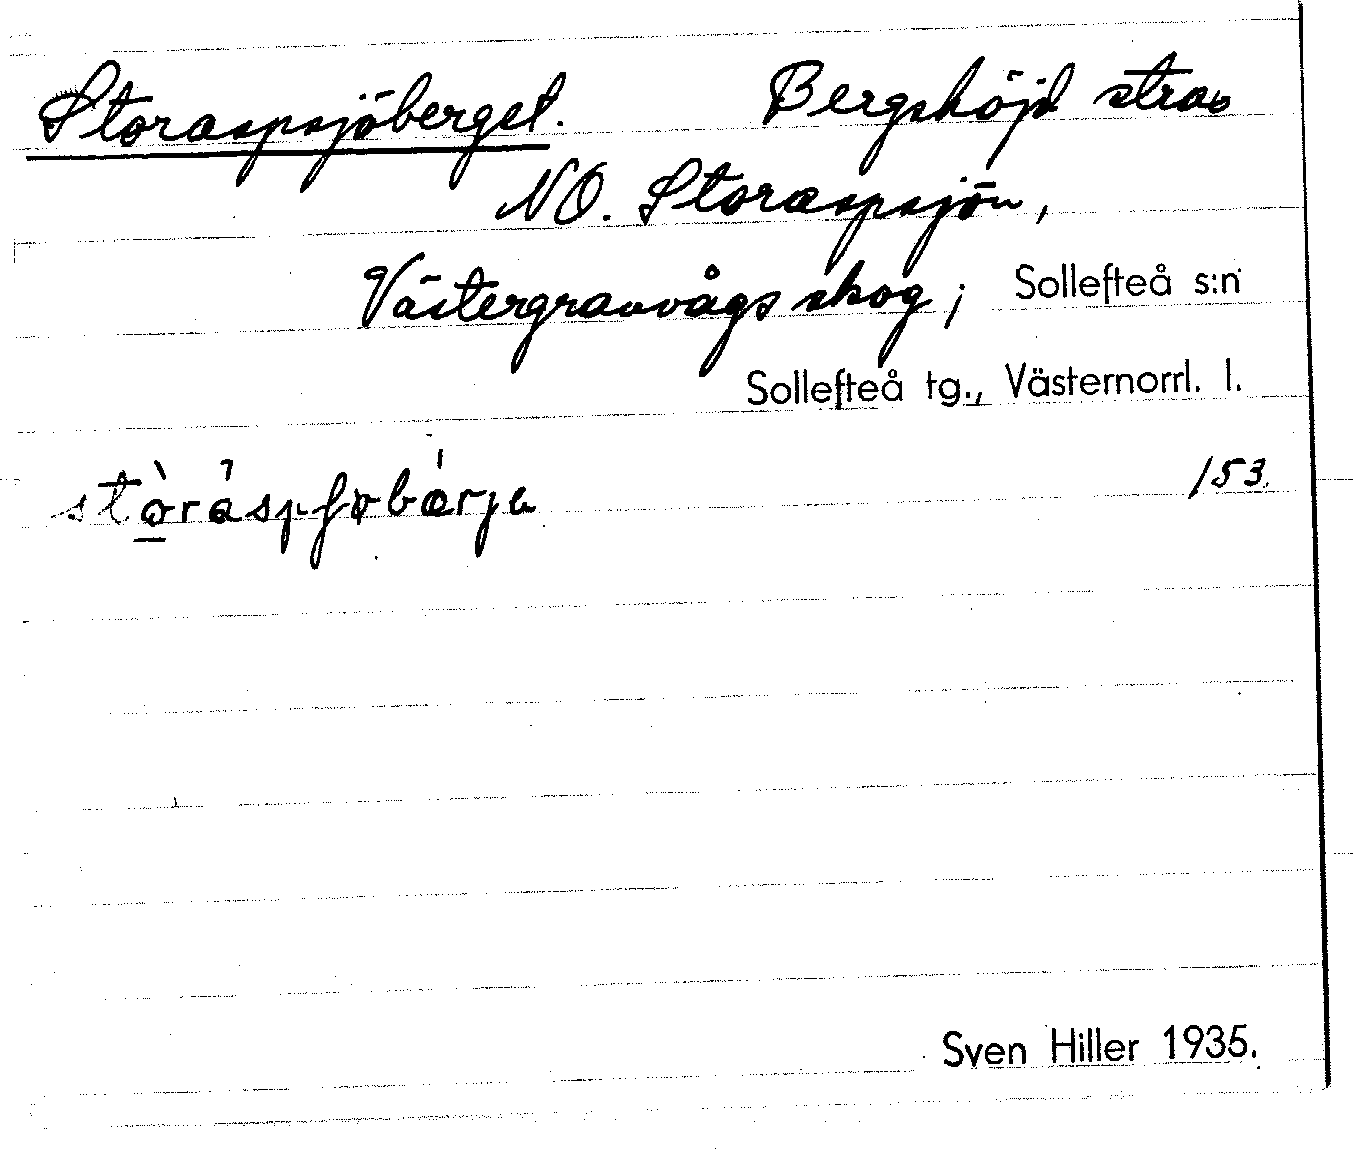 Storaspsjöberget. Bergshöjd strax
NO. Storaspsjön,
Västergransvågs skog; Sollefteå s:n
Sollefteå tg., Västernorrl. l.
153.
Sven Hiller 1935.